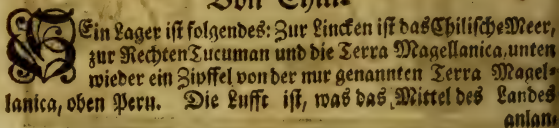 Von Chili.
Sein Lager ist folgendes: Zur Lincken ist das Chilische Meer,
zur Rechten Tucuman und die Terra Magellanica, unten
wieder ein Zipffel von der nur genannten Terra Magel-
lanica, oben Peru. Die Lufft ist, was das Mittel des Landes
anlan-